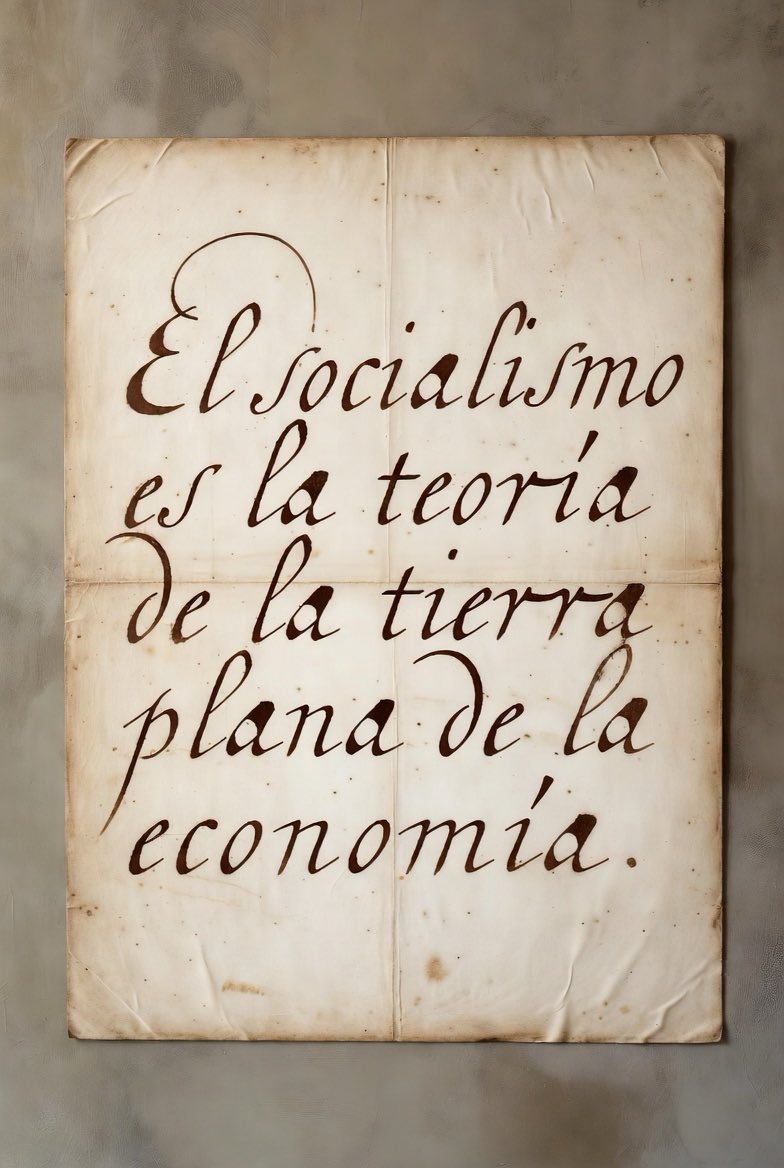 El socialismo
es la teoría
de la tierra
plana de la
economía.